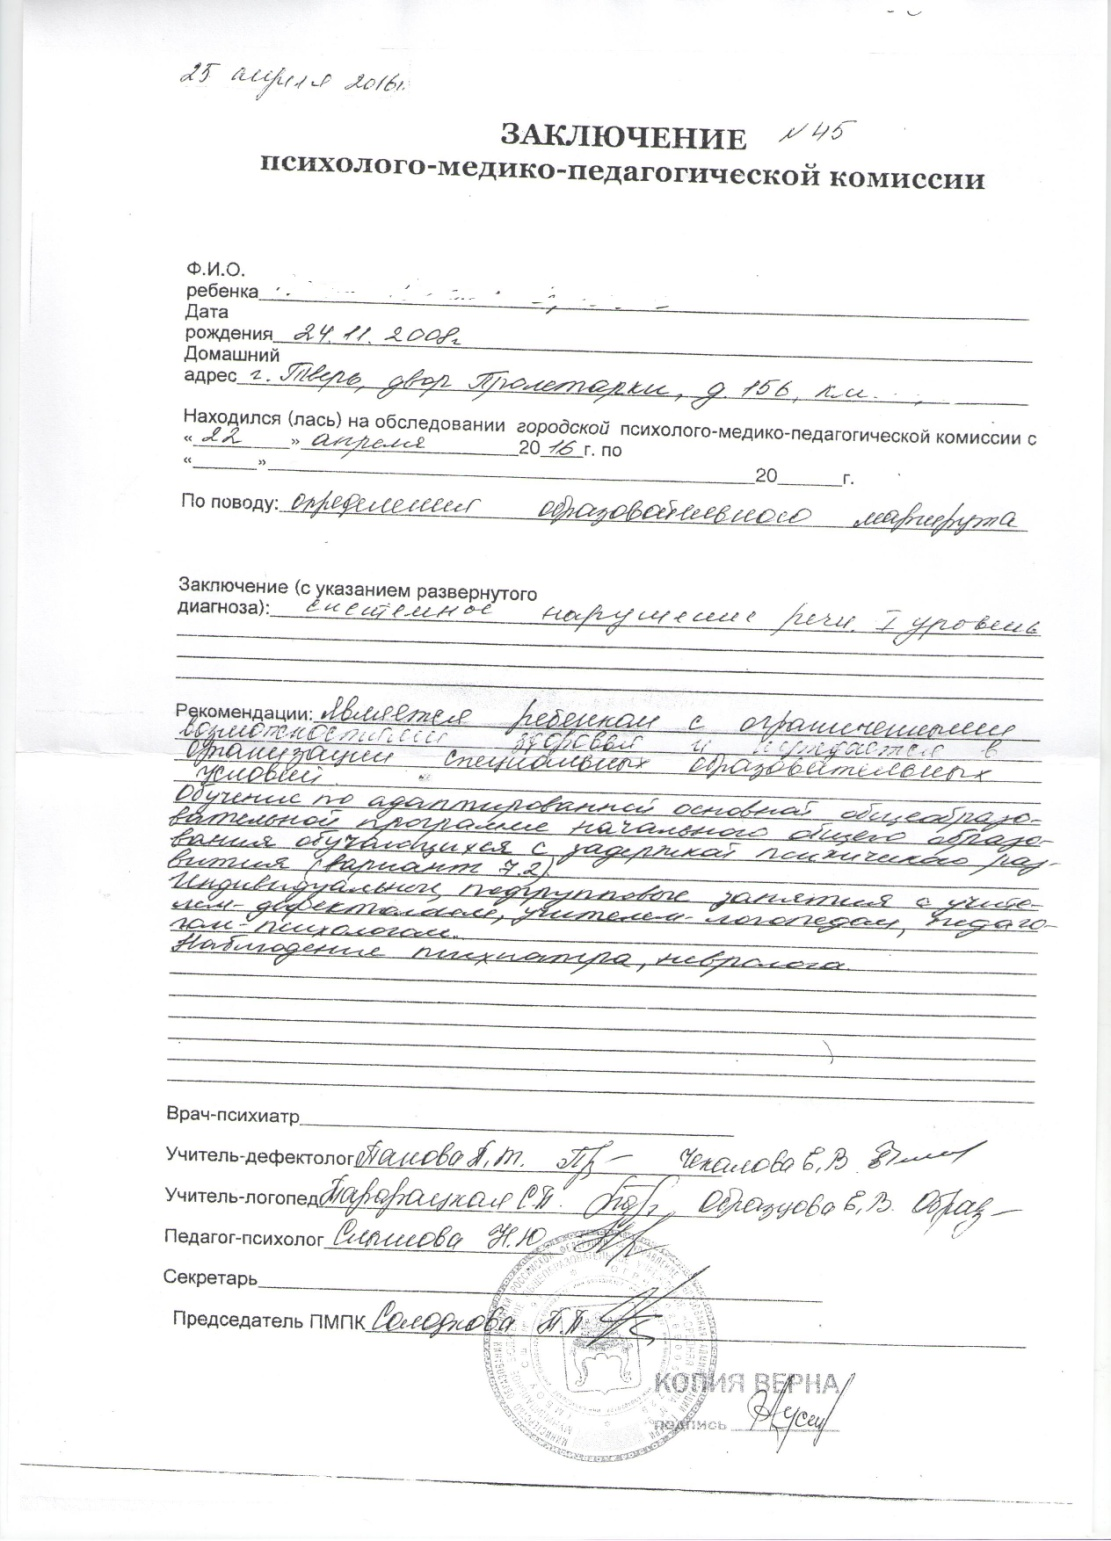 25 апреля 2016г.
ЗАКЛЮЧЕНИЕ №45
психолого-медико-педагогической комиссии
Ф.И.О.
ребенка
Дата
рождения 24.11.2008г
Домашний
адрес г. Тверь, двор Пролетарки, д. 156, км.
Находился (лась) на обследовании городской психолого-медико-педагогической комиссии с
« 22 » апреля 2016 г. по
« » 20 г.
По поводу: определения образовательного маршрута
Заключение (с указанием развернутого
диагноза): системное нарушение речи. I уровень
Рекомендации: Является ребенком с ограниченными
возможностями здоровья и нуждается в
организации специальных образовательных
условий
Обучение по адаптированной основной общеобразо-
вательной программе начального общего образо-
вания обучающихся с задержкой психического раз-
вития (вариант 7.2)
Индивидуальные, подгрупповые занятия с учите-
лем-дефектологом, учителем-логопедом, педаго-
гом-психологом.
Наблюдение психиатра, невролога.
Врач-психиатр
Учитель-дефектолог Панова П.Т. Чекалова Е.В
Учитель-логопед С.П. Образцова Е.В. Образ
Педагог-психолог Н.Ю
Секретарь
Председатель ПМПК Солодкова
КОПИЯ ВЕРНА
подпись